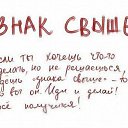 ЗНАК СВЫШЕ
если ты хочешь что-то
сделать, но не решаешься,
ждешь „знака свыше" - то
вот он. Иди и делай!
всё получится!